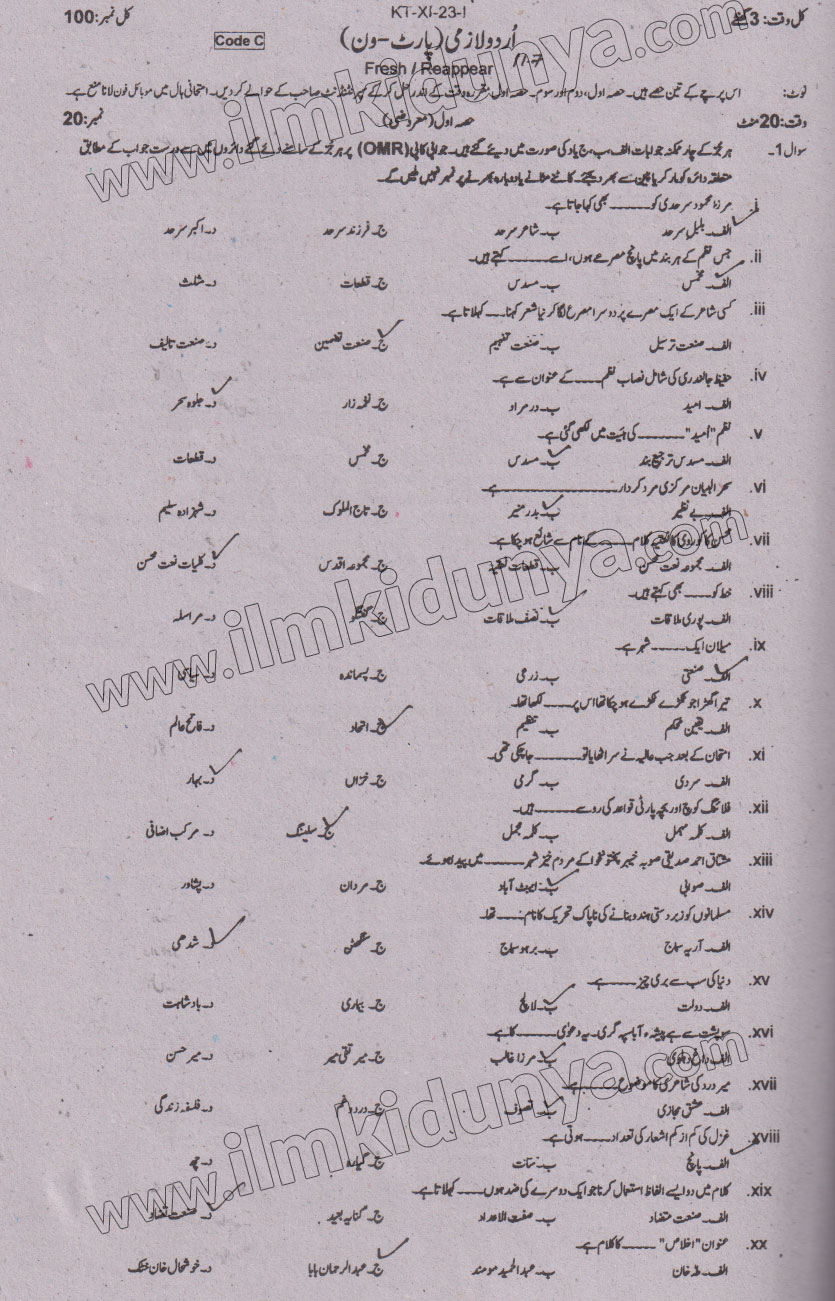 KT-XI-23-I
کل وقت: 3 گھنٹے
اُردو لازمی (پارٹ-ون)
Code C
کل نمبر: 100
Fresh / Reappear
نوٹ: اس پرچے کے تین حصے ہیں۔ حصہ اول، دوم اور سوم۔ حصہ اول مقررہ وقت کے اندر حل کر کے سپرنٹنڈنٹ صاحب کے حوالے کر دیں۔ امتحانی ہال میں موبائل فون لانا منع ہے۔
وقت: 20 منٹ حصہ اول (معروضی) نمبر: 20
سوال 1۔ ہر جُز کے چار ممکنہ جوابات الف، ب، ج یا د کی صورت میں دیئے گئے ہیں۔ جوابی کاپی (OMR) پر ہر جُز کے سامنے دیئے گئے دائروں میں سے درست جواب کے مطابق
متعلقہ دائرہ کو مارکر یا پین سے بھر دیجئے۔ کاٹنے مٹانے یا دوبارہ بھرنے پر نمبر نہیں ملیں گے۔
i. مرزا محمود سرحدی کو ـــــــ بھی کہا جاتا ہے۔
الف۔ بلبلِ سرحد ب۔ شاعرِ سرحد ج۔ فرزندِ سرحد د۔ اکبرِ سرحد
ii. جس نظم کے ہر بند میں پانچ مصرعے ہوں، اسے ـــــــ کہتے ہیں۔
الف۔ مخمس ب۔ مسدس ج۔ قطعات د۔ مثلث
iii. کسی شاعر کے ایک مصرعے پر دوسرا مصرع لگا کر نیا شعر کہنا ـــــــ کہلاتا ہے۔
الف۔ صنعت ترسیل ب۔ صنعت تفہیم ج۔ صنعت تضمین د۔ صنعت تالیف
iv. حفیظ جالندھری کی شامل نصاب نظم ـــــــ کے عنوان سے ہے۔
الف۔ امید ب۔ در مراد ج۔ نغمہ زار د۔ جلوہ سحر
v. نظم "اُمید" ـــــــ کی ہئیت میں لکھی گئی ہے۔
الف۔ مسدس ترجیع بند ب۔ مسدس ج۔ مخمس د۔ قطعات
vi. سحر البیان مرکزی مرد کردار ـــــــ ہے۔
الف۔ بے نظیر ب۔ بدر منیر ج۔ تاج الملوک د۔ شہزادہ سلیم
vii. محسن کاکوروی کا نعتیہ کلام ـــــــ کے نام سے شائع ہو چکا ہے۔
الف۔ مجموعہ نعت محسن ب۔ قطعات نعتیہ ج۔ مجموعہ اقدس د۔ کلیات نعت محسن
viii. خط کو ـــــــ بھی کہتے ہیں۔
الف۔ پوری ملاقات ب۔ نصف ملاقات ج۔ گفتگو د۔ مراسلہ
ix. میلان ایک ـــــــ شہر ہے۔
الف۔ صنعتی ب۔ زرعی ج۔ پسماندہ د۔ سیاحتی
x. تیرا گھڑا جو ٹکڑے ٹکڑے ہو چکا تھا اس پر ـــــــ لکھا تھا۔
الف۔ یقین محکم ب۔ تنظیم ج۔ اتحاد د۔ فاتح عالم
xi. امتحان کے بعد جب عالیہ نے سر اٹھایا تو ـــــــ جا چکی تھی۔
الف۔ سردی ب۔ گرمی ج۔ خزاں د۔ بہار
xii. فلائنگ کوچ اور بچہ پارٹی قواعد کی رو سے ـــــــ ہیں۔
الف۔ کلمہ مہمل ب۔ کلمہ مجمل ج۔ سلینگ د۔ مرکب اضافی
xiii. مشتاق احمد صدیقی صوبہ خیبر پختونخوا کے مردم خیز شہر ـــــــ میں پیدا ہوئے۔
الف۔ صوابی ب۔ ایبٹ آباد ج۔ مردان د۔ پشاور
xiv. مسلمانوں کو زبردستی ہندو بنانے کی ناپاک تحریک کا نام ـــــــ تھا۔
الف۔ آریہ سماج ب۔ برہمو سماج ج۔ سنگھٹن د۔ شدھی
xv. دنیا کی سب سے بری چیز ـــــــ ہے۔
الف۔ دولت ب۔ لالچ ج۔ بیماری د۔ بادشاہت
xvi. سو پشت سے ہے پیشہء آبا سپہ گری۔ یہ دعوٰی ـــــــ کا ہے۔
الف۔ داغ دہلوی ب۔ مرزا غالب ج۔ میر تقی میر د۔ میر حسن
xvii. میر درد کی شاعری کا موضوع ـــــــ ہے۔
الف۔ عشق مجازی ب۔ تصوف ج۔ درد و غم د۔ فلسفہ زندگی
xviii. غزل کی کم از کم اشعار کی تعداد ـــــــ ہوتی ہے۔
الف۔ پانچ ب۔ سات ج۔ گیارہ د۔ چھ
xix. کلام میں دو ایسے الفاظ استعمال کرنا جو ایک دوسرے کی ضد ہوں ـــــــ کہلاتا ہے۔
الف۔ صنعت متضاد ب۔ صفت الاعداد ج۔ کنایہ بعید د۔ صنعت تضاد
xx. عنوان "اخلاص" ـــــــ کا کلام ہے۔
الف۔ طہٰ خان ب۔ عبدالحمید مومند ج۔ عبدالرحمان بابا د۔ خوشحال خان خٹک
www.ilmkidunya.com
www.ilmkidunya.com
www.ilmkidunya.com